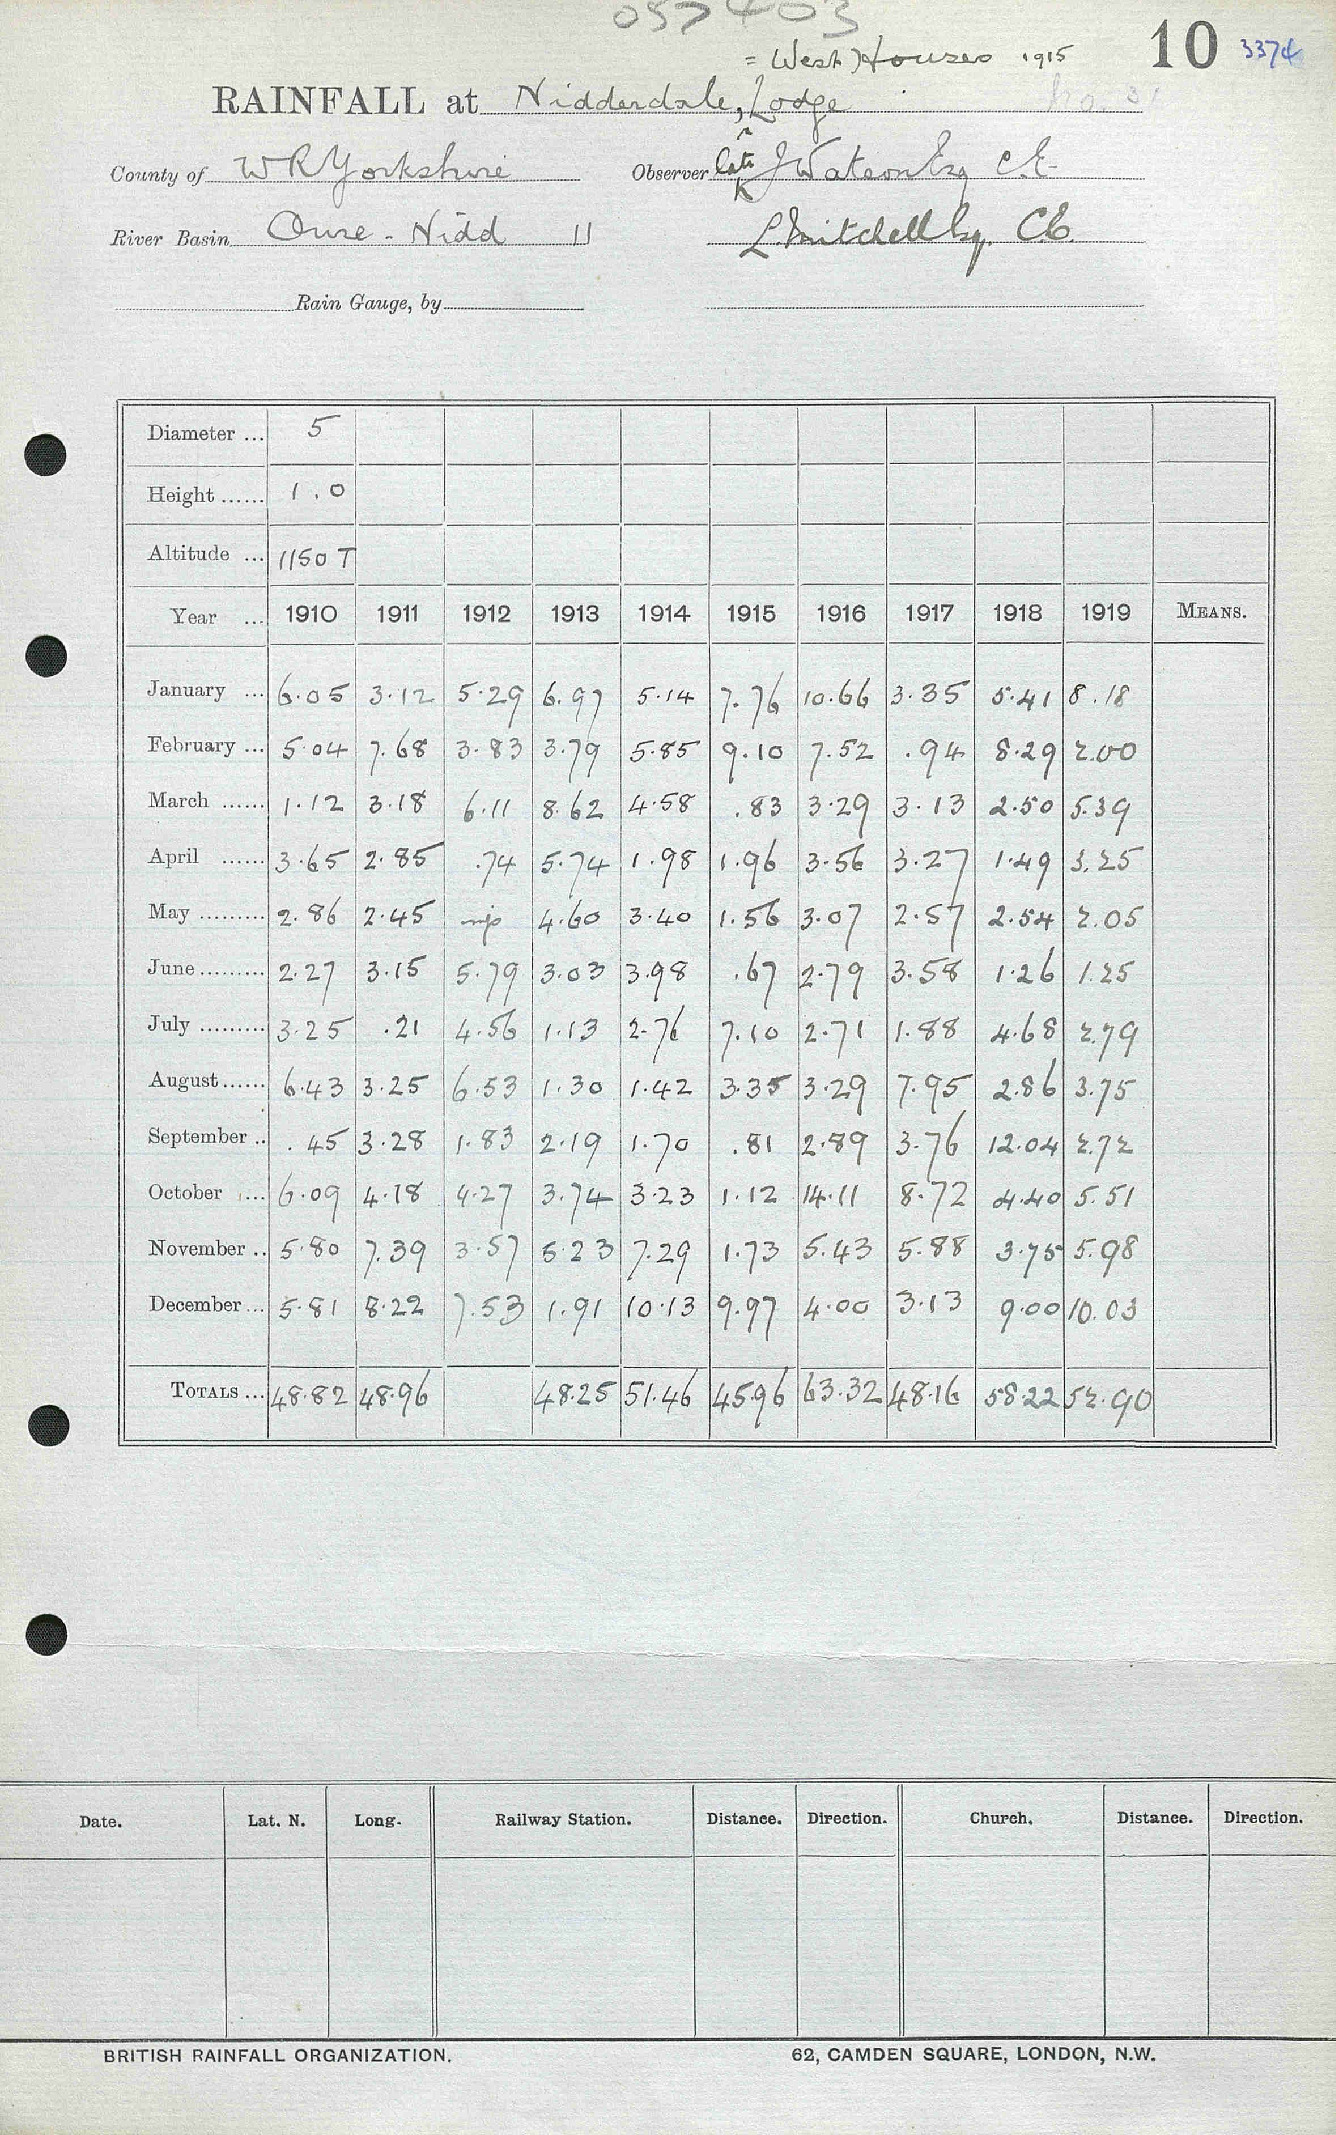 057403
= West Houses 1915
10 3374
RAINFALL at Nidderdale, Lodge
County of W R Yorkshire Observer late J Watson Esq C.E.
River Basin Oure - Nidd 11 L. Mitchell Esq. C.E.
Rain Gauge, by
Diameter ... 5
Height ...... 1.0
Altitude ... 1150 T
Year ... 1910 1911 1912 1913 1914 1915 1916 1917 1918 1919 MEANS.
January ... 6.05 3.12 5.29 6.97 5.14 7.76 10.66 3.35 5.41 8.18
February ... 5.04 7.68 3.83 3.79 5.85 9.10 7.52 .94 8.29 2.00
March ...... 1.12 3.18 6.11 8.62 4.58 .83 3.29 3.13 2.50 5.39
April ...... 3.65 2.85 .74 5.74 1.98 1.96 3.56 3.27 1.49 3.25
May ......... 2.86 2.45 4.60 3.40 1.56 3.07 2.57 2.54 2.05
June ......... 2.27 3.15 5.79 3.03 3.98 .67 2.79 3.58 1.26 1.25
July ......... 3.25 .21 4.56 1.13 2.76 7.10 2.71 1.88 4.68 2.79
August ...... 6.43 3.25 6.53 1.30 1.42 3.35 3.29 7.95 2.86 3.75
September .. .45 3.28 1.83 2.19 1.70 .81 2.89 3.76 12.04 2.72
October ... 6.09 4.18 4.27 3.74 3.23 1.12 14.11 8.72 4.40 5.51
November .. 5.80 7.39 3.57 5.23 7.29 1.73 5.43 5.88 3.75 5.98
December ... 5.81 8.22 7.53 1.91 10.13 9.97 4.00 3.13 9.00 10.03
TOTALS ... 48.82 48.96 48.25 51.46 45.96 63.32 48.16 58.22 52.90
Date. Lat. N. Long. Railway Station. Distance. Direction. Church. Distance. Direction.
BRITISH RAINFALL ORGANIZATION. 62, CAMDEN SQUARE, LONDON, N.W.